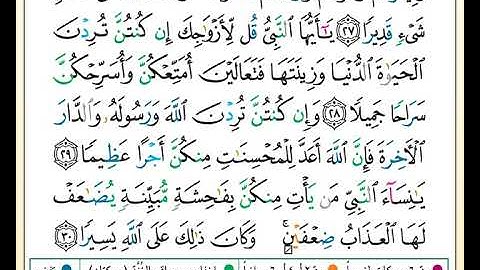 شَىْءٍ قَدِيرًا ٢٧ يَٰٓأَيُّهَا ٱلنَّبِىُّ قُل لِّأَزْوَٰجِكَ إِن كُنتُنَّ تُرِدْنَ
ٱلْحَيَوٰةَ ٱلدُّنْيَا وَزِينَتَهَا فَتَعَالَيْنَ أُمَتِّعْكُنَّ وَأُسَرِّحْكُنَّ
سَرَاحًا جَمِيلًا ٢٨ وَإِن كُنتُنَّ تُرِدْنَ ٱللَّهَ وَرَسُولَهُۥ وَٱلدَّارَ
ٱلْأَخِرَةَ فَإِنَّ ٱللَّهَ أَعَدَّ لِلْمُحْسِنَٰتِ مِنكُنَّ أَجْرًا عَظِيمًا ٢٩
يَٰنِسَآءَ ٱلنَّبِىِّ مَن يَأْتِ مِنكُنَّ بِفَٰحِشَةٍ مُّبَيِّنَةٍ يُضَٰعَفْ
لَهَا ٱلْعَذَابُ ضِعْفَيْنِ ۚ وَكَانَ ذَٰلِكَ عَلَى ٱللَّهِ يَسِيرًا ٣٠